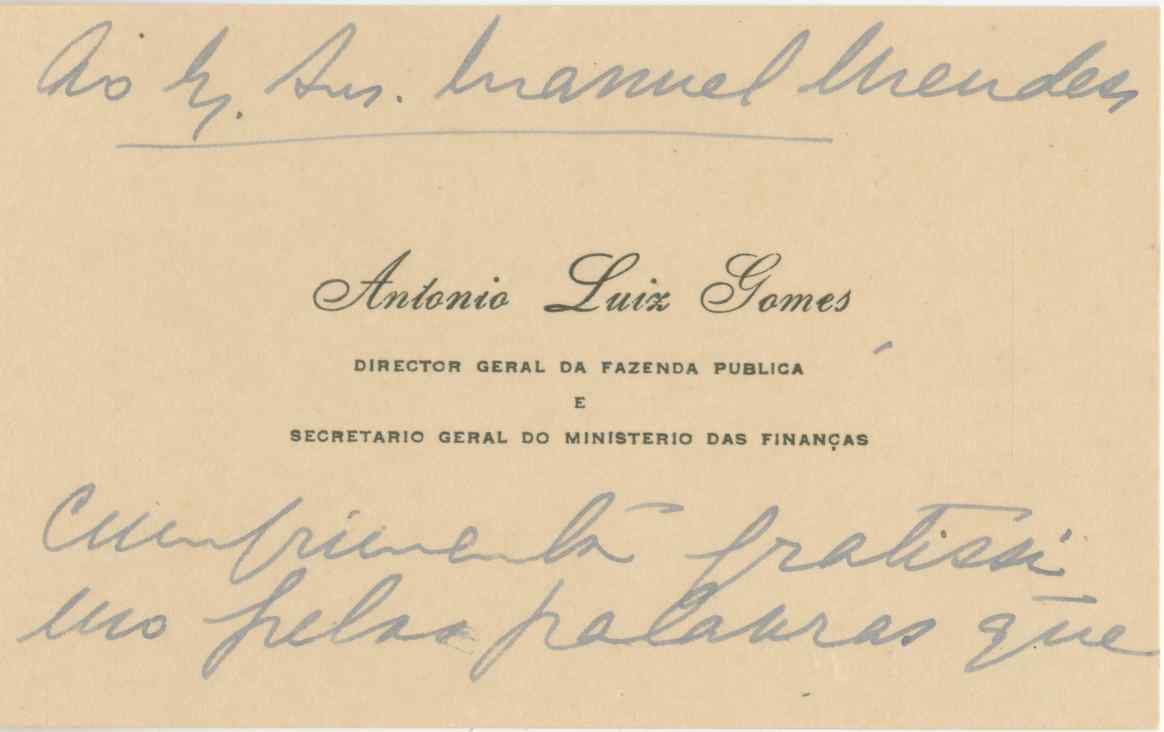 Ao Exmo. Snr. Manuel Mendes
Antonio Luiz Gomes
DIRECTOR GERAL DA FAZENDA PUBLICA
E
SECRETARIO GERAL DO MINISTERIO DAS FINANÇAS
cumprimenta gratissi
mo pelas palavras que